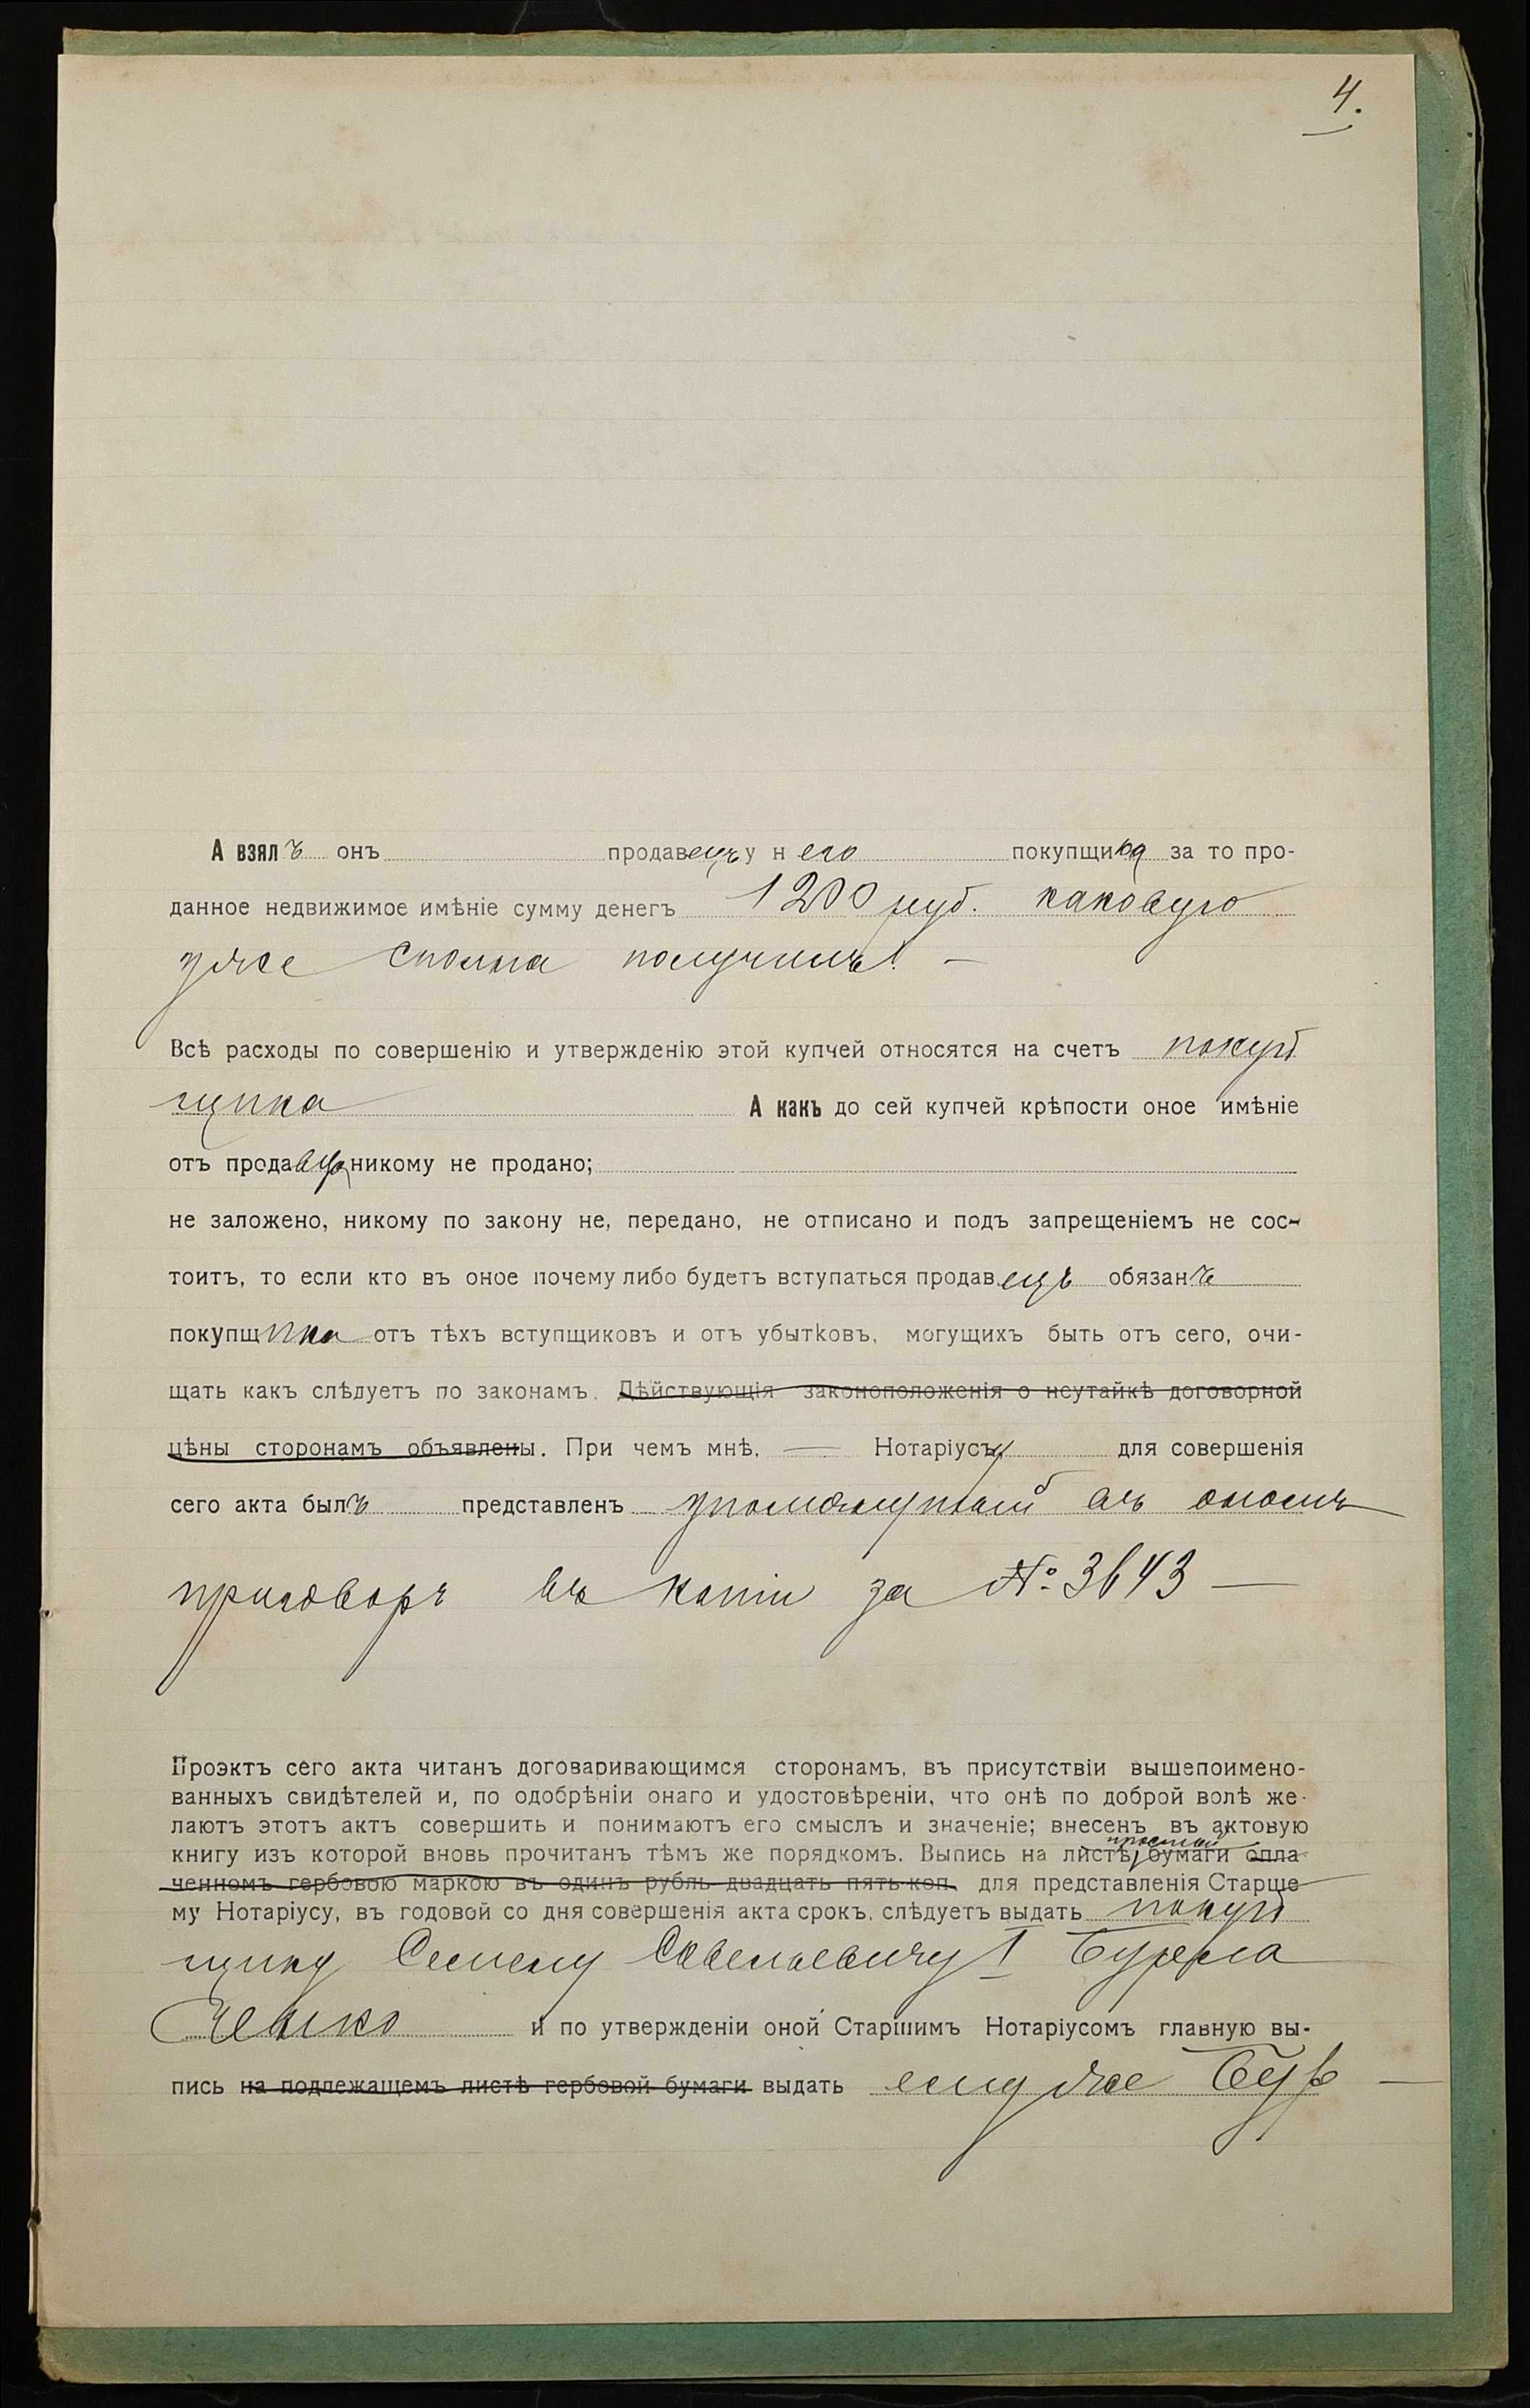 4.
А взялъ онъ продавецъ у него покупщика за то про-
данное недвижимое имѣніе сумму денегъ 1200 руб. каковую
уже сполна получилъ. —
Всѣ расходы по совершенію и утвержденію этой купчей относятся на счетъ покуп
щика А какъ до сей купчей крѣпости оное имѣніе
отъ продавца никому не продано;
не заложено, никому по закону не, передано, не отписано и подъ запрещеніемъ не сос-
тоитъ, то если кто въ оное почему либо будетъ вступаться продавецъ обязанъ
покупщика отъ тѣхъ вступщиковъ и отъ убытковъ, могущихъ быть отъ сего, очи-
щать какъ слѣдуетъ по законамъ. Дѣйствующія законоположенія о неутайкѣ договорной
цѣны сторонамъ объявлены. При чемъ мнѣ, — Нотаріусу для совершенія
сего акта былъ представленъ упомянутый въ ономъ
приговоръ въ копіи за № 3643 —
Проэктъ сего акта читанъ договаривающимся сторонамъ, въ присутствіи вышепоимено-
ванныхъ свидѣтелей и, по одобрѣніи онаго и удостовѣреніи, что онѣ по доброй волѣ же-
лаютъ этотъ актъ совершить и понимаютъ его смыслъ и значеніе; внесенъ въ актовую
простой
книгу изъ которой вновь прочитанъ тѣмъ же порядкомъ. Выпись на листѣ, бумаги опла-
ченномъ гербовою маркою въ одинъ рубль двадцать пять коп. для представленія Старше
му Нотаріусу, въ годовой со дня совершенія акта срокъ, слѣдуетъ выдать покуп
щику Семену Савельевичу I Бурла
ченко и по утвержденіи оной Старшимъ Нотаріусомъ главную вы-
пись на подлежащемъ листѣ гербовой бумаги выдать ему же